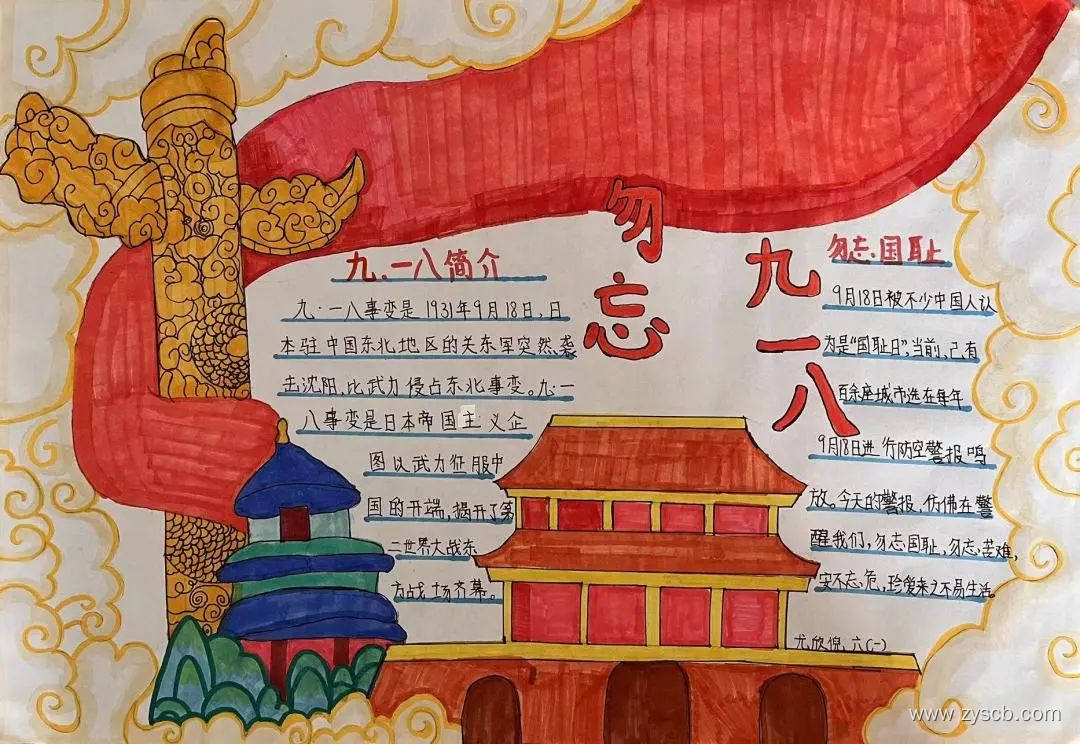 勿忘
九一八
九·一八简介
九·一八事变是1931年9月18日,日
本驻中国东北地区的关东军突然袭
击沈阳,比武力侵占东北事变。九·一
八事变是日本帝国主义企
图以武力征服中
国的开端,揭开了第
二世界大战东
方战场齐幕。
勿忘国耻
9月18日被不少中国人认
为是“国耻日”,当前,已有
百余座城市选在每年
9月18日进行防空警报鸣
放。今天的警报,仿佛在警
醒我们,勿忘国耻,勿忘苦难,
安不忘危,珍爱来之不易生活。
尤欣倪 六(一)
www.zyscb.com